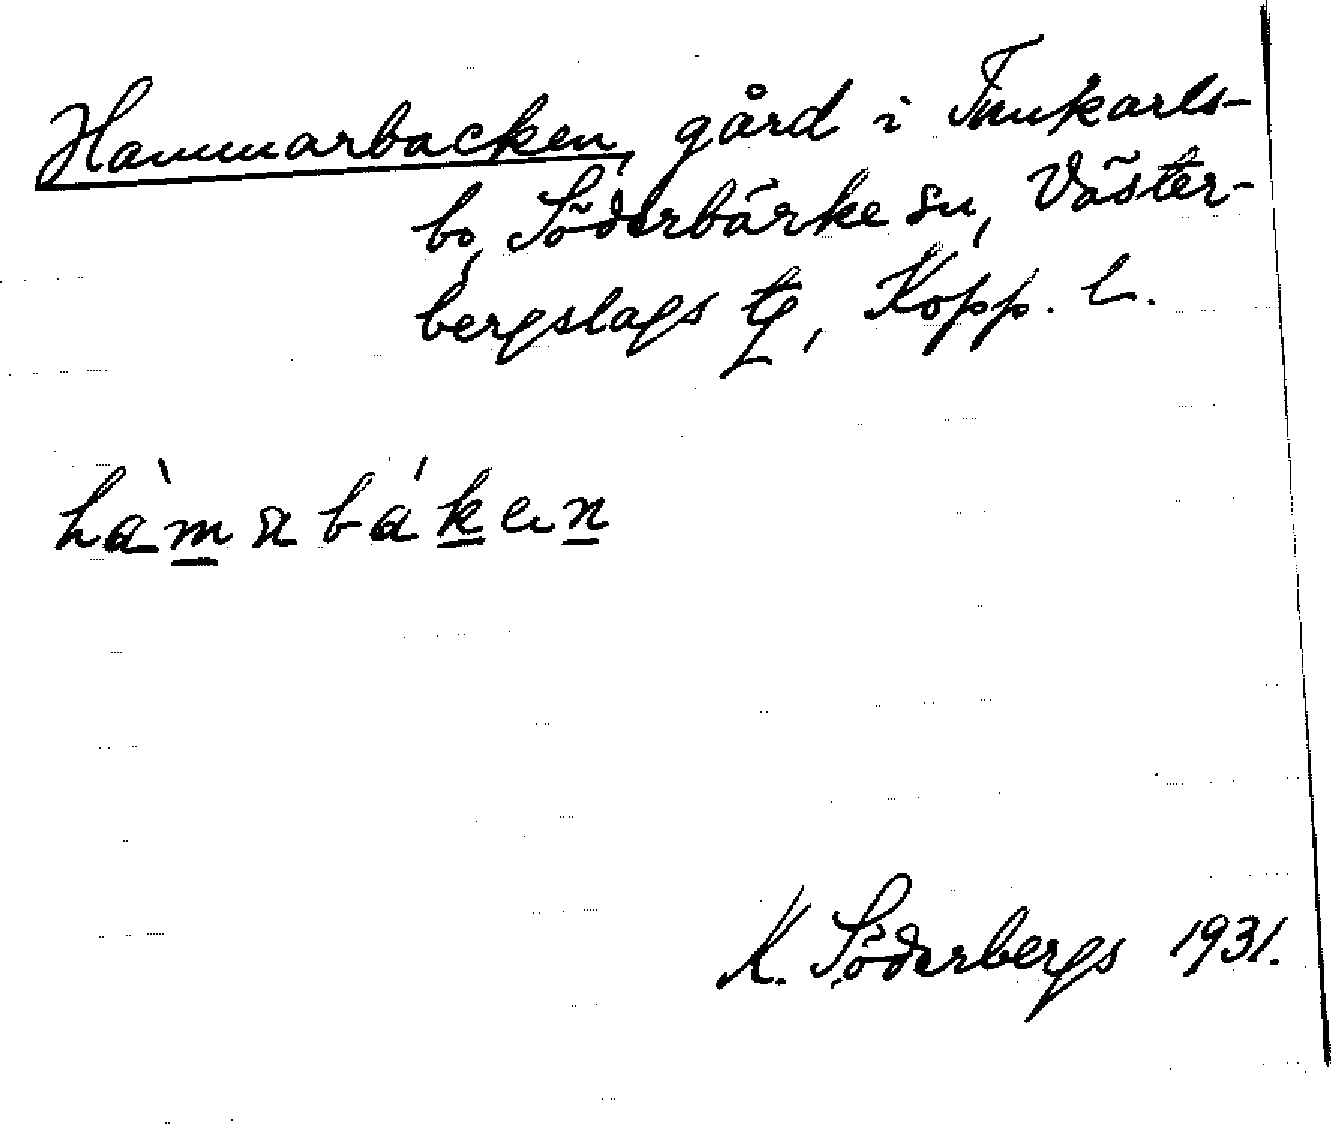 Hammarbacken, gård i Finnkarls-
bo, Söderbärke sn, Väster-
bergslags tg, Kopp. l.
hàmabákен
K. Söderbergs 1931.